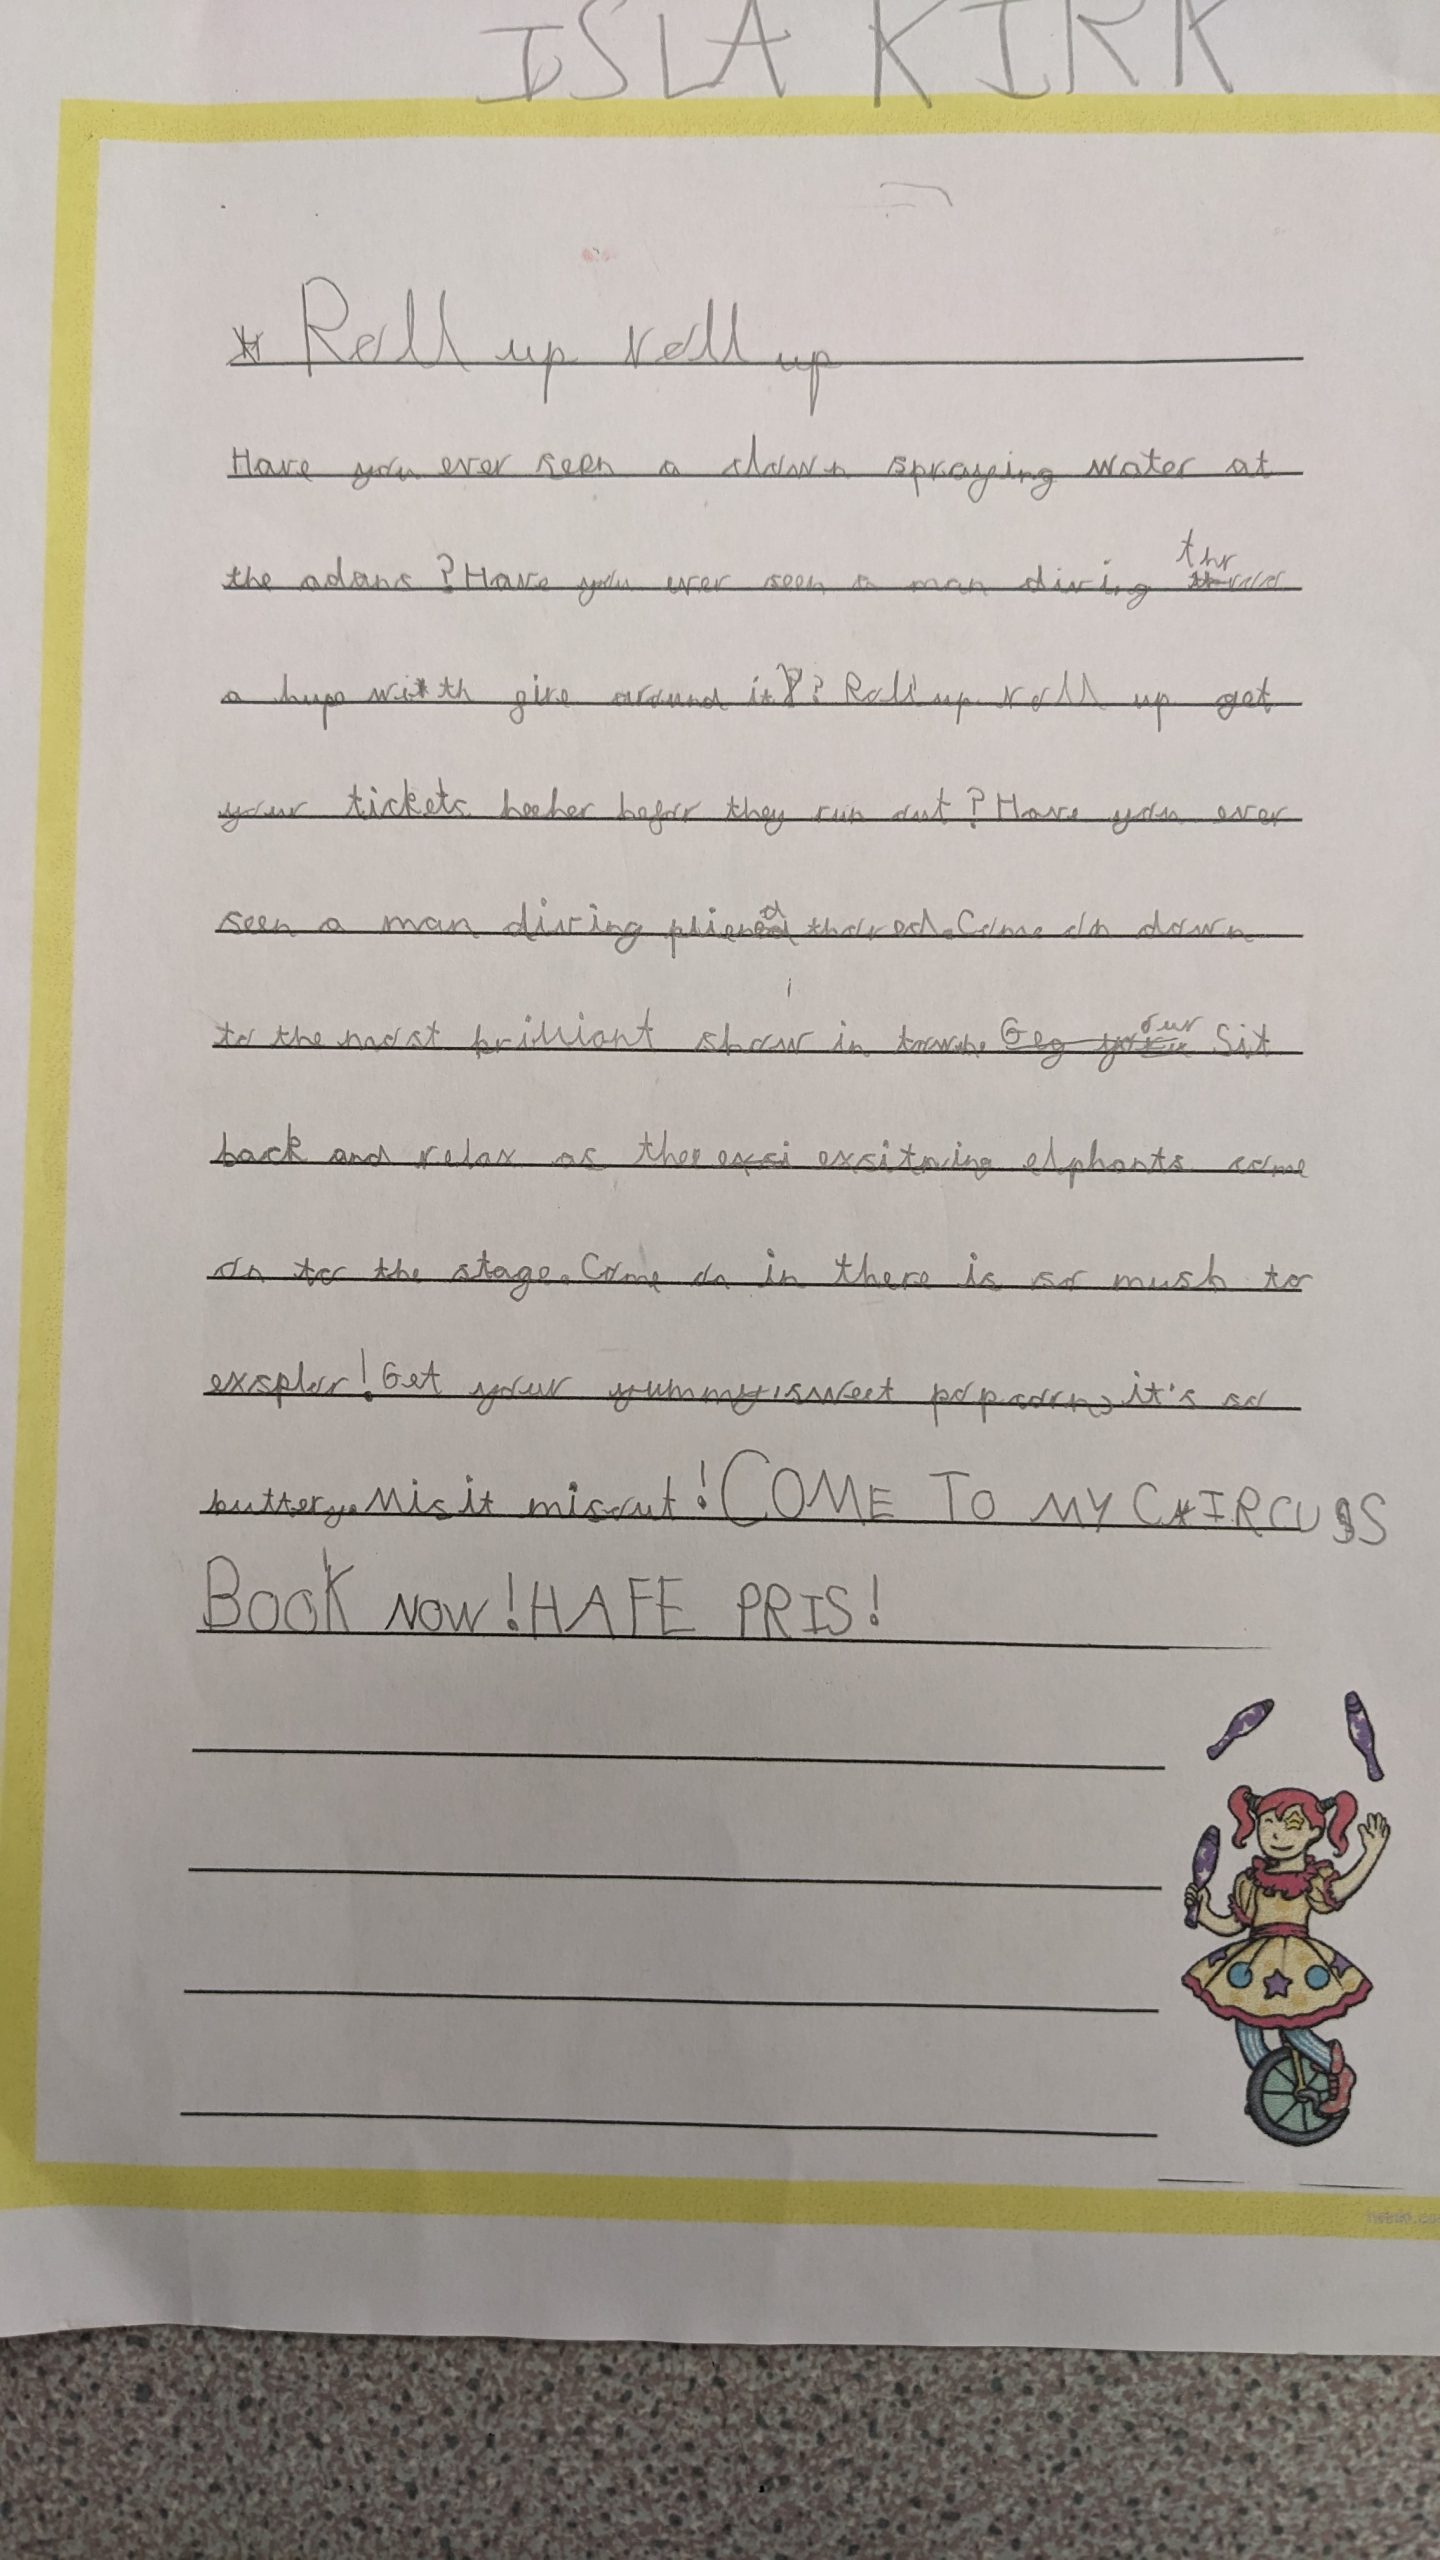 ISLA KIRK
* Roll up roll up
Have you ever seen a clown spraying water at
the adans ? Have you ever seen a man diving thr
a hupe with gire around it ? Roll up roll up get
your tickets heeher befor they run out ? Have you ever
seen a man diving thored. Come on down
to the most brilliant show in town. Sit
back and relax as the exsi exsitning elphants come
on to the stage. Come on in there is so mush to
exsplor! Get your yummy, sweet popcorn, it's so
buttery. Mis it mis out! COME TO MY CIRCUSS
BOOK NOW! HAFE PRIS!